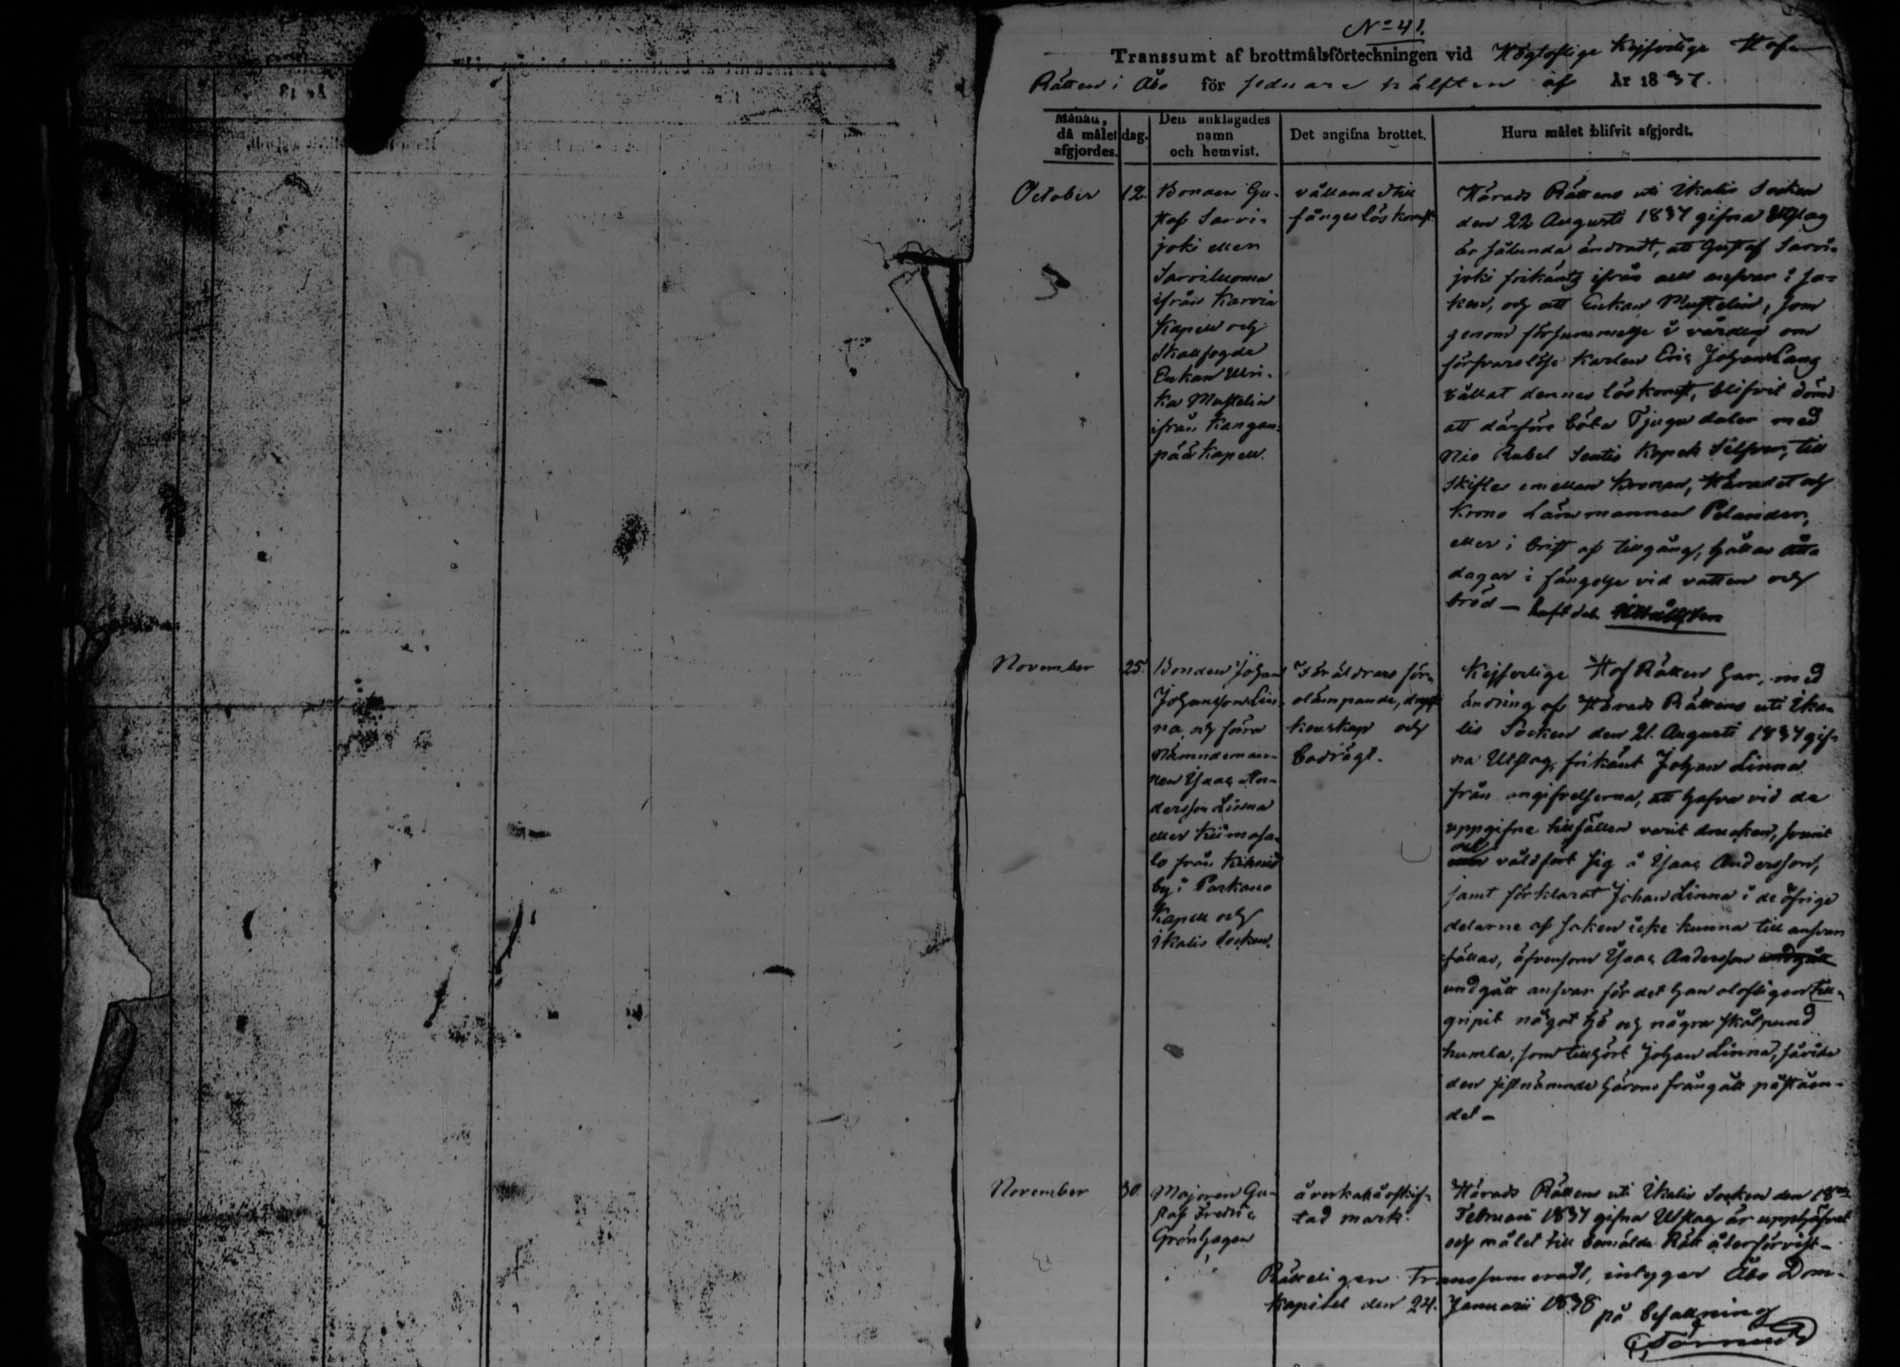 No 41.
Transsumt af brottmålsförteckningen vid Högloflige Kejserlige Hof
Rätten i Åbo för sednare hälften af År 1837.
Månan, då målet afgjordes.
dag.
Den anklagades namn och hemvist.
Det angifna brottet.
Huru målet blifvit afgjordt.
October
12.
Bonden Gu-
staf Sarvi-
joki eller
Sarviluoma
ifrån Karvia
Kapell och
Skallfogde
Enkan Ulri-
ka Mustelin
ifrån Kangan-
pää Kapell.
vållande till
fånges löskomst
Härads Rättens uti Ikalis Socken
den 22 Augusti 1837 gifna Utslag
är sålunda ändradt, att Gustaf Sarvi-
joki frikänts ifrån allt ansvar i sa-
ken, och att Enkan Mustelin, som
genom försummelse i vården om
försvarslöse Karlen Eric Johan Lang
vållat dennes löskomst, blifvit dömd
att därföre böta Tjugu daler med
Nio Rubel Sextio Kopek Silfver, till
skiftes emellan Kronan, Häradet och
Krono Länsmannen Pelander,
eller i brist af tillgång, hållas åtta
dagar i fängelse vid vatten och
bröd —
November
25.
Bonden Johan
Johansson Lin-
na, och förra
Nämndeman-
nen Isaac An-
dersson Linna
eller Kiimasa-
lo från Kihniö
by i Parkano
Kapell och
Ikalis Socken.
Föräldrars för-
olämpande, dryc-
kenskap och
bedrägl.
Kejserlige Hof Rätten har, med
ändring af Härads Rättens uti Ika-
lis Socken den 21. Augusti 1837 gif-
na Utslag, frikänt Johan Linna
från angifvelserna, att hafva vid de
uppgifne tillfällen varit drucken, samt
våldfört sig å Isaac Andersson,
samt förklarat Johan Linna i de öfrige
delarne af saken icke kunna till ansvar
fällas, äfvensom Isaac Andersson undgått
undgått ansvar för det han olofligen till-
gripit något hö och några skålpund
humla, som tillhört Johan Linna, såvida
den sistnämnde härom frångått påståen-
det —
November
30.
Majoren Gu-
staf Fredric
Grönhagen
åverkan å oskif-
tad mark.
Härads Rättens uti Ikalis Socken den 18de
Februarii 1837 gifna Utslag är upphäfvet
och målet till bemälde Rätt återförvist —
Rätteligen Transsumeradt, intygar Åbo Dom-
kapitel den 24. Januarii 1838
på befallning